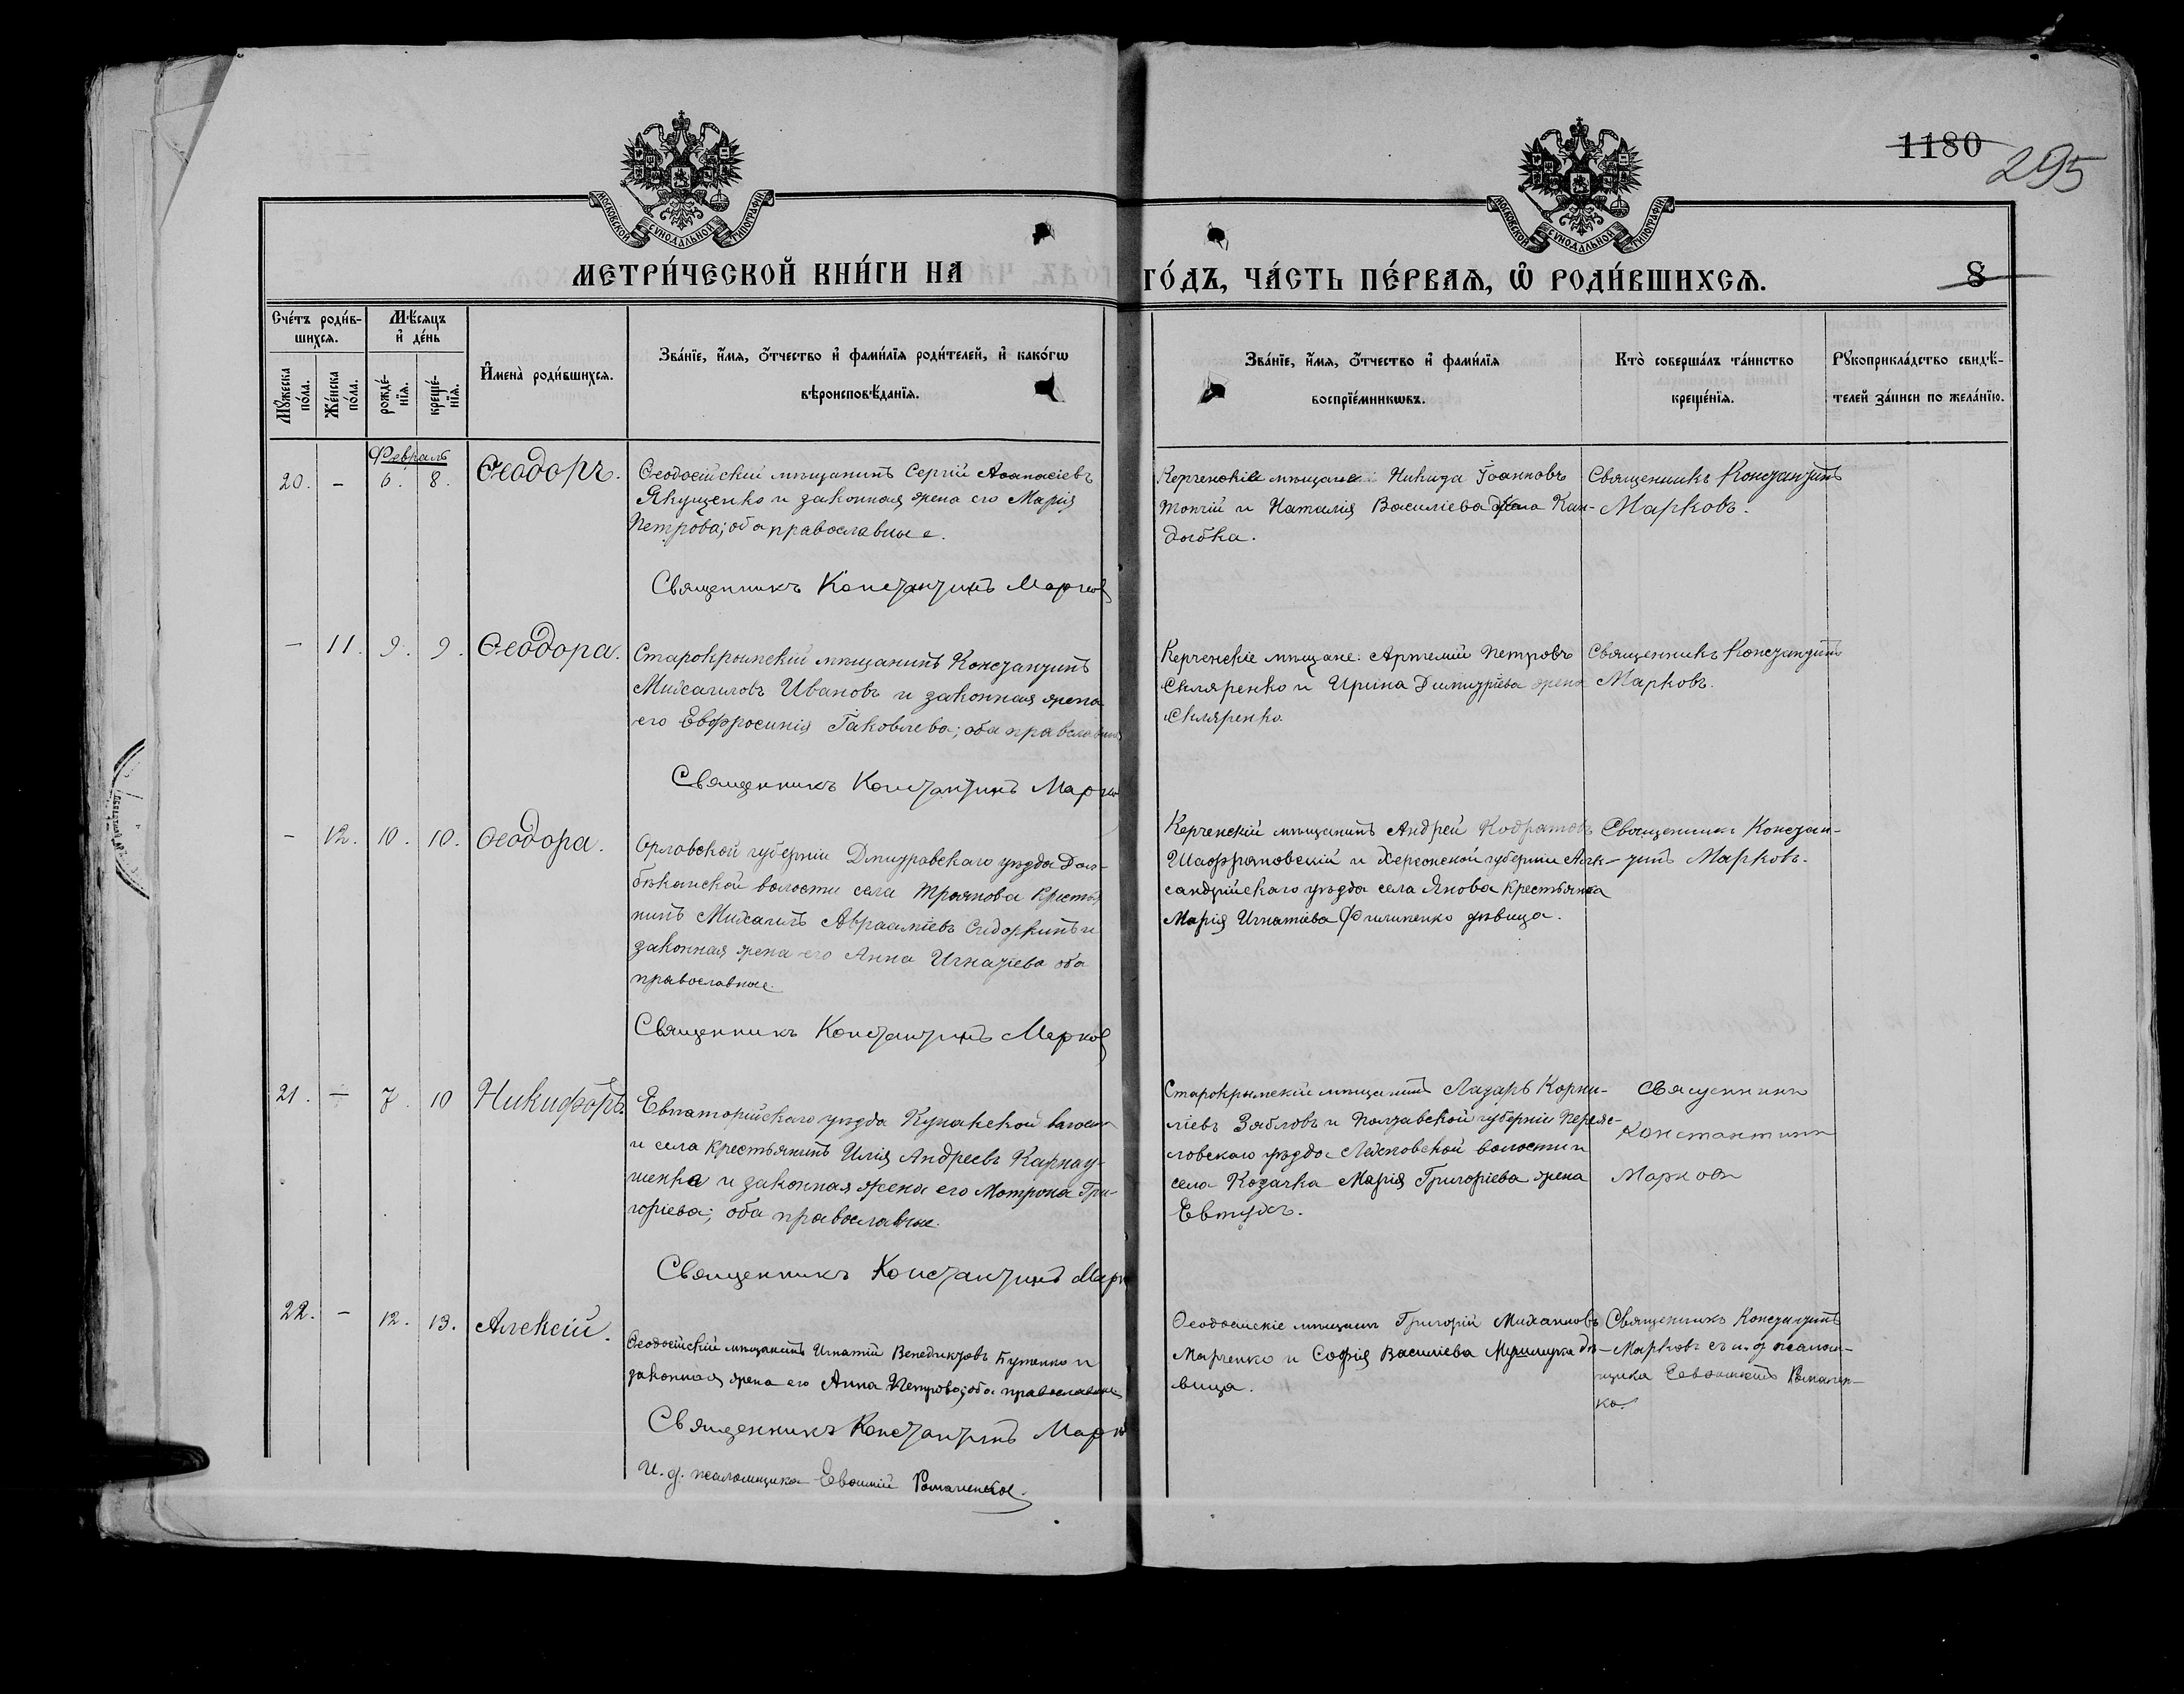 1180
295
МОСКОВСКОЙ СѴНОДАЛЬНОЙ ТИПОГРАФІИ
МОСКОВСКОЙ СѴНОДАЛЬНОЙ ТИПОГРАФІИ
МЕТРИ́ЧЕСКОЙ КНИ́ГИ НА
ГО́ДЪ, ЧА́СТЬ ПЕ́РВАѦ, Ѡ҆ РОДИ́ВШИХСѦ.
8
Сче́тъ роди́в-
шихся.
Мѣ́сяцъ
и҆ де́нь
Мꙋ́жеска
по́ла.
Же́нска
по́ла.
рожде́-
нїя.
креще́-
нїя.
И҆мена̀ роди́вшихся.
Зва́нїе, и҆́мя, ѻ҆́тчество и҆ фами́лїя роди́телей, и҆ како́гѡ
вѣроисповѣ́данїя.
Зва́нїе, и҆́мя, ѻ҆́тчество и҆ фами́лїя
воспрїе́мникѡвъ.
Кто̀ соверша́лъ та́инство
креще́нїя.
Рꙋкоприкла́дство свидѣ́-
телей за́писи по жела́нїю.
Февраль
20. – 6. 8. Ѳеодоръ.
Ѳеодосійскій мѣщанинъ Сергій Аѳанасіевъ
Якущенко и законная жена его Марія
Петрова; оба православные.
Священникъ Константинъ Марков
Керченскіе мѣщане: Никита Іоанновъ
Топчій и Наталія Василіева жена Кан-
дыбка.
Священникъ Константинъ
Марковъ.
– 11. 9. 9. Ѳеодора.
Старокрымскій мѣщанинъ Константинъ
Михаиловъ Ивановъ и законная жена
его Евфросинія Іаковлева; оба православные
Священникъ Константинъ Марко
Керченскіе мѣщане: Артемій Петровъ
Скляренко и Ирина Димитріева жена
Скляренко.
Священникъ Константинъ
Марковъ.
– 12. 10. 10. Ѳеодора.
Орловской губерніи Дмитровскаго уѣзда Дол-
бѣнкинской волости села Троянова крестья
нинъ Михаилъ Авраамієвъ Сидоркинъ и
законная жена его Анна Игнатіева оба
православные.
Священникъ Константинъ Марков
Керченскій мѣщанинъ Андрей Кодратовъ
Шафрановскій и Херсонской губерніи Алек-
сандрійскаго уѣзда села Янова крестьянка
Марія Игнатіева Филипенко дѣвица.
Священникъ Констан-
тинъ Марковъ.
21. – 7. 10 Никифоръ.
Евпаторійскаго уѣзда волости
и села крестьянинъ Илія Андреевъ Карнау-
шенко и законная жена его Мотрона Гри-
горіева; оба православные.
Священникъ Константинъ Марк
Старокрымскій мѣщанинъ Лазарь Корни-
ліевъ Зябловъ и Полтавской губерніи Переяс-
ловскаго уѣзда волости и
села Козачка Марія Григоріева жена
Евтухъ.
Священникъ
Константинъ
Марковъ
22. – 12. 13. Алексій.
Ѳеодосійскій мѣщанинъ Игнатій Венедиктовъ Бутенко и
законная жена его Анна Петрова; оба православные
Священникъ Константинъ Марко
И. д. псаломщика Евѳимій Романенко.
Ѳеодосійскіе мѣщане Григорій Михаиловъ
Марченко и Софія Василіева дѣ-
вица.
Священникъ Константинъ
Марковъ съ и. д. псалом-
щика Евѳиміемъ Романен-
ко.